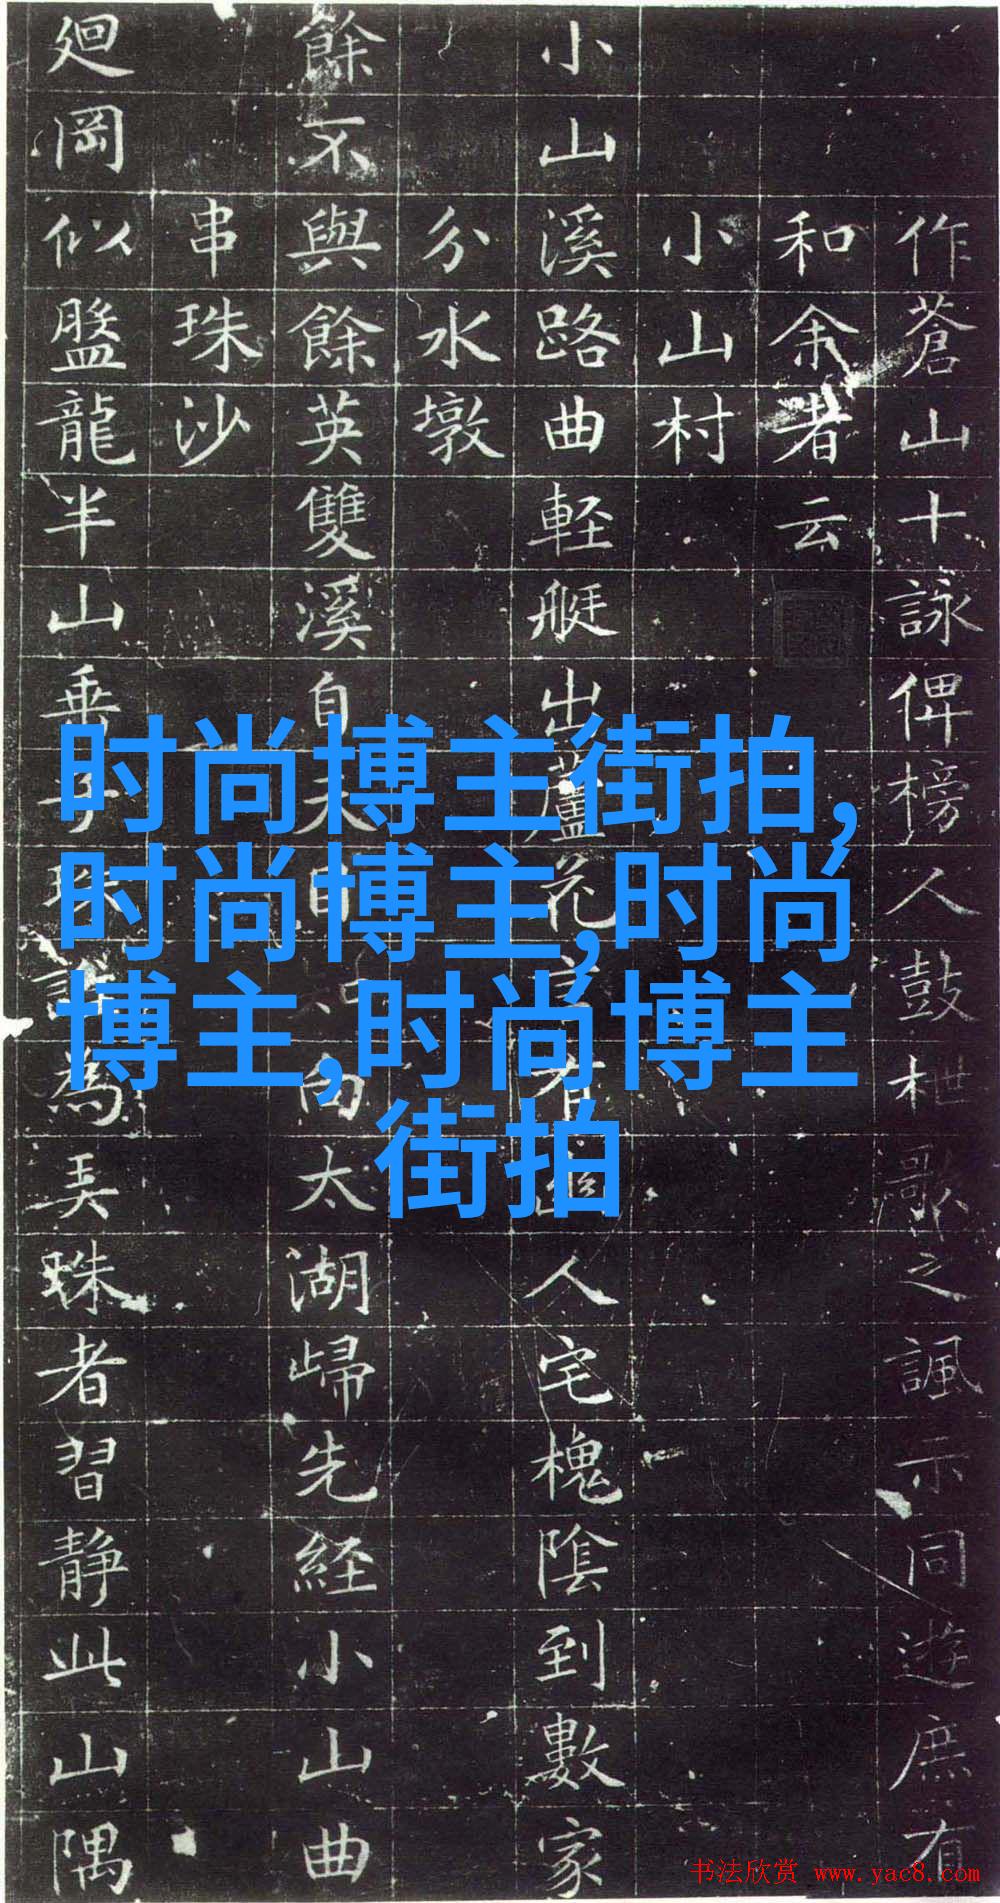 作蒼山十詠俾榜人鼓枻歌之諷示同遊庶有
和余者云
小山村
小山溪路曲軽艇出蘆花人宅槐陰到數家
分水墩
餘不與餘英雙溪自向太湖歸先経小山曲
串珠沙
廻岡似盤龍半山垂子為弄珠者習静此山隅
时尚博主街拍,
时尚博主,时尚
博主,时尚博主
街拍
书法欣赏 www.yac8.com